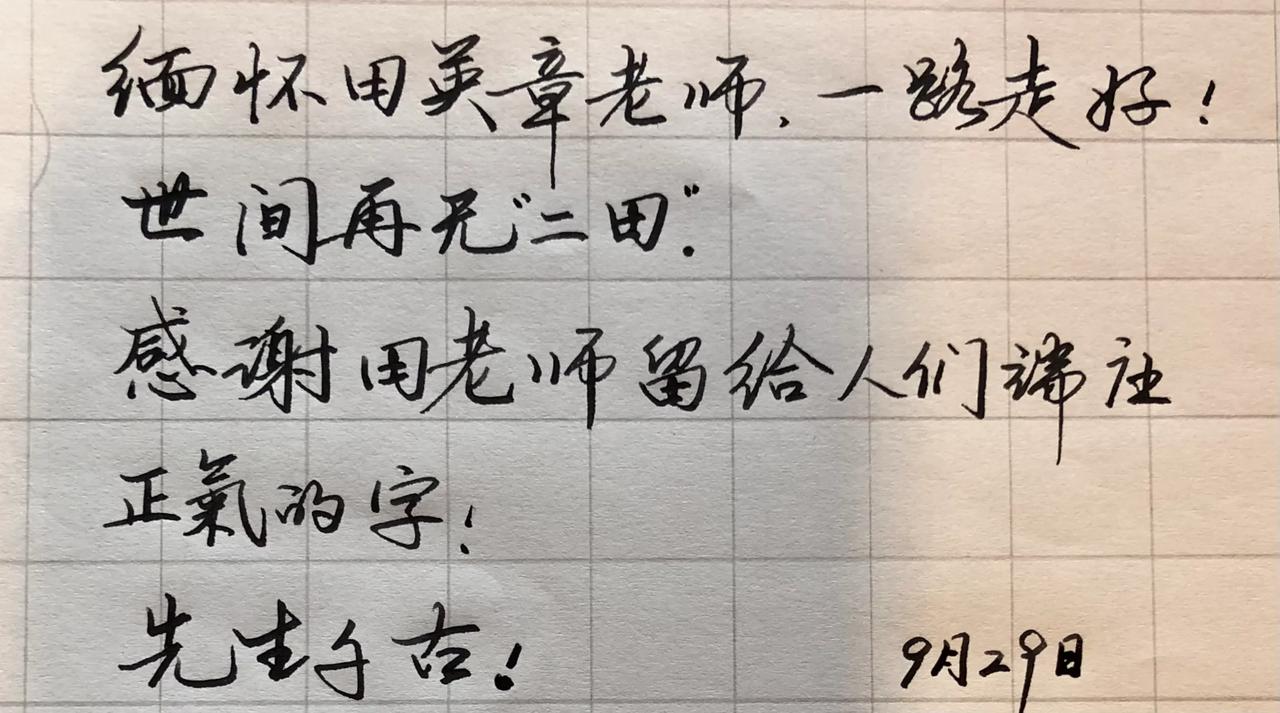 缅怀田英章老师，一路走好！
世间再无“二田”．
感谢田老师留给人们端庄
正氣的字！
先生千古！
9月29日